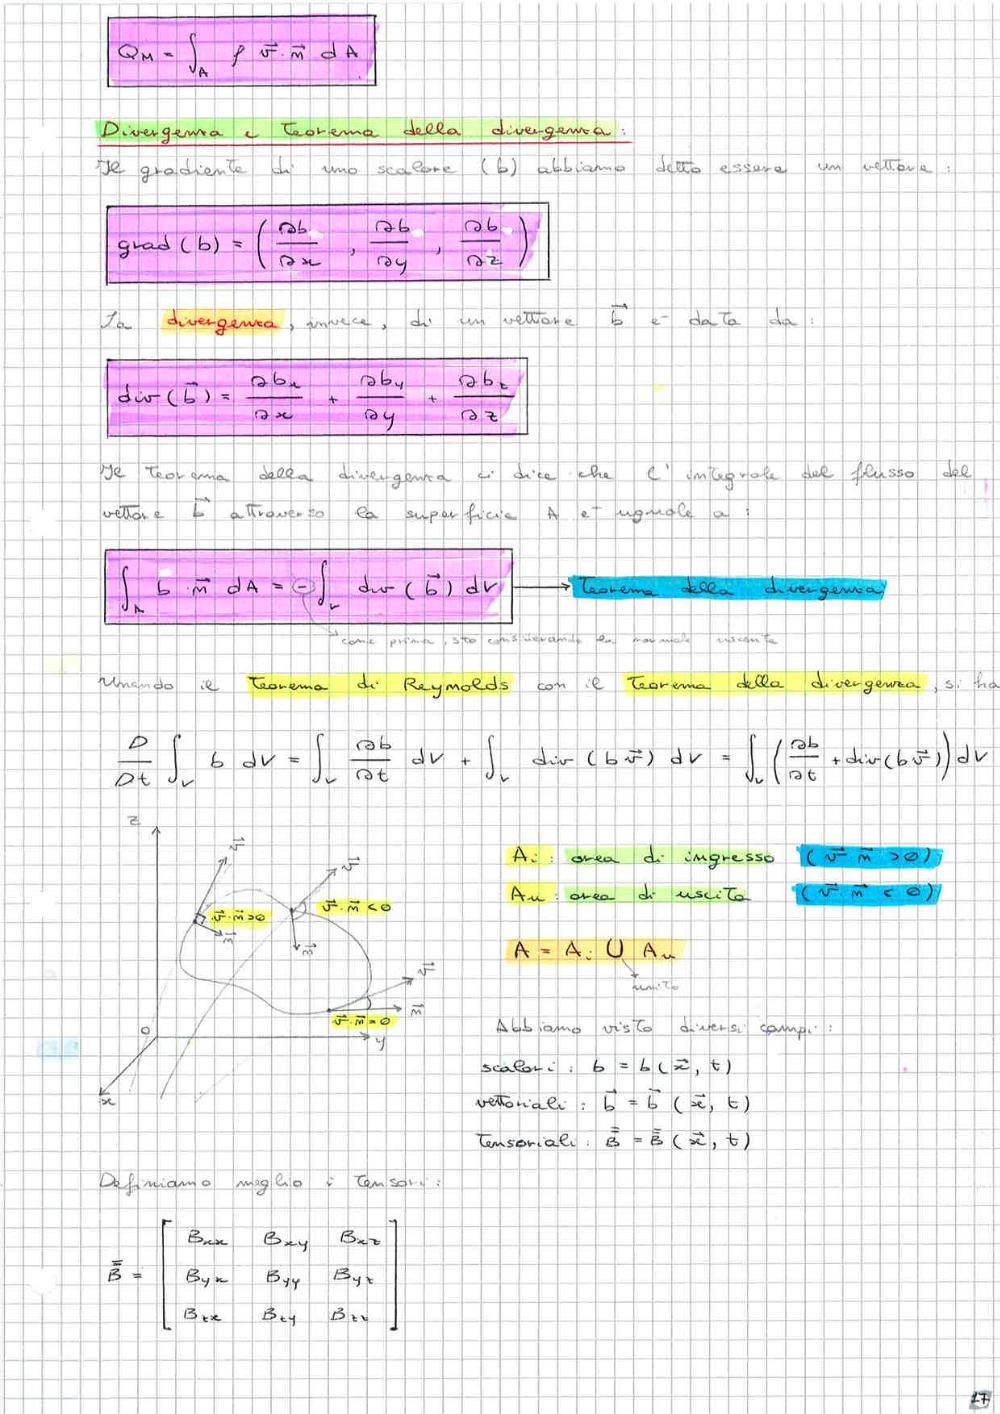 Q_M = ∫_A ρ v⃗ · n⃗ dA
Divergenza e teorema della divergenza:
Il gradiente di uno scalare (b) abbiamo detto essere un vettore:
grad (b) = (∂b/∂x , ∂b/∂y , ∂b/∂z)
La divergenza, invece, di un vettore b⃗ è data da:
div (b⃗) = ∂bx/∂x + ∂by/∂y + ∂bz/∂z
Il teorema della divergenza ci dice che l'integrale del flusso del
vettore b⃗ attraverso la superficie A è uguale a:
∫_A b · n⃗ dA = - ∫_V div (b⃗) dV → Teorema della divergenza
come prima, sto considerando la normale uscente
Unendo il teorema di Reynolds con il teorema della divergenza, si ha
D/Dt ∫_V b dV = ∫_V ∂b/∂t dV + ∫_V div (b v⃗) dV = ∫_V (∂b/∂t + div (b v⃗)) dV
z
v⃗
v⃗
v⃗ · n⃗ > 0
v⃗ · n⃗ < 0
n⃗
n⃗
v⃗
n⃗
v⃗ · n⃗ = 0
0
y
x
Ai: area di ingresso (v⃗ · n⃗ > 0)
Au: area di uscita (v⃗ · n⃗ < 0)
A = Ai ∪ Au
unito
Abbiamo visto diversi campi:
scalari: b = b (x⃗, t)
vettoriali: b⃗ = b⃗ (x⃗, t)
tensoriali: B̿ = B̿ (x⃗, t)
Definiamo meglio i tensori:
B̿ = [ Bxx Bxy Bxz
Byx Byy Byz
Bzx Bzy Bzz ]
17